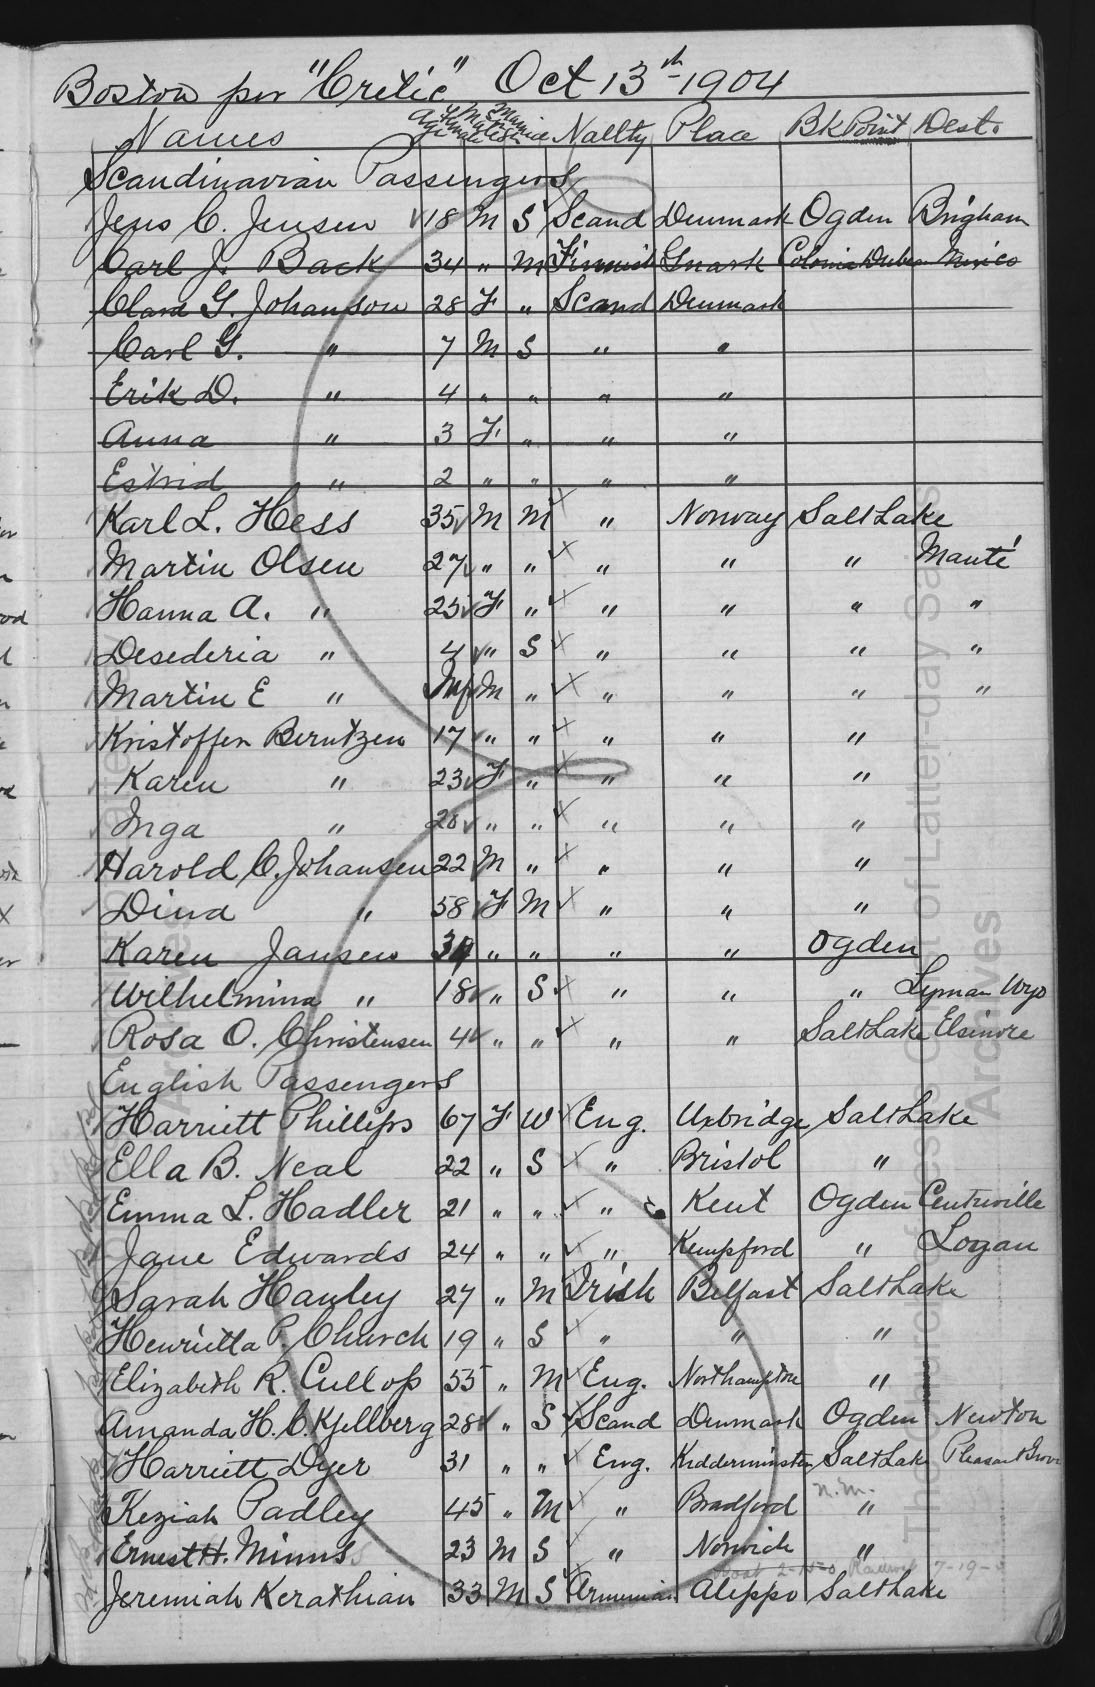 Boston per "Cretic" Oct 13th 1904
Names Age Female Male Single Married Natlty Place BkPoint Dest.
Scandinavian Passengers
Jens C. Jensen 18 M S Scand Denmark Ogden Brigham
Carl J. Back 34 " M Finnish Colonia Dublan Mexico
Clara G. Johanson 28 F " Scand Denmark
Carl G. " 7 M S " "
Erik D. " 4 " " " "
Anna " 3 F " " "
Estrid " 2 " " " "
Karl L. Hess 35 M M " Norway SaltLake
Martin Olsen 27 " " " " " Manti
Hanna A. " 25 F " " " " "
Desederia " 4 " S " " " "
Martin E " Inf M " " " " "
Kristoffer Berntzen 17 " " " " "
Karen " 23 F " " " "
Inga " 28 " " " " "
Harold C. Johansen 22 M " " " "
Dina " 58 F M " " "
Karen Jansen " " " " Ogden
Wilhelmina " 18 " S " " " Lyman Wyo
Rosa O. Christensen 4 " " " " SaltLake Elsinore
English Passengers
Harriett Phillips 67 F W Eng. Uxbridge SaltLake
Ella B. Neal 22 " S " Bristol "
Emma L. Hadler 21 " " " Kent Ogden Centerville
Jane Edwards 24 " " " Kempford " Logan
Sarah Hanley 27 " M Irish Belfast SaltLake
Henrietta P. Church 19 " S " " "
Elizabeth R. Cullop 55 " M Eng. Northampton "
Amanda H. C. Kjellberg 28 " S Scand Denmark Ogden Newton
Harriett Dyer 31 " " Eng. Kidderminster SaltLake Pleasant Grove
Keziah Padley 45 " M " Bradford n.m. "
Ernest H. Minns 23 M S " Norwich "
Jeremiah Kerathian 33 M S Armenian Aleppo SaltLake
The Church of Jesus Christ of Latter-day Saints
Archives